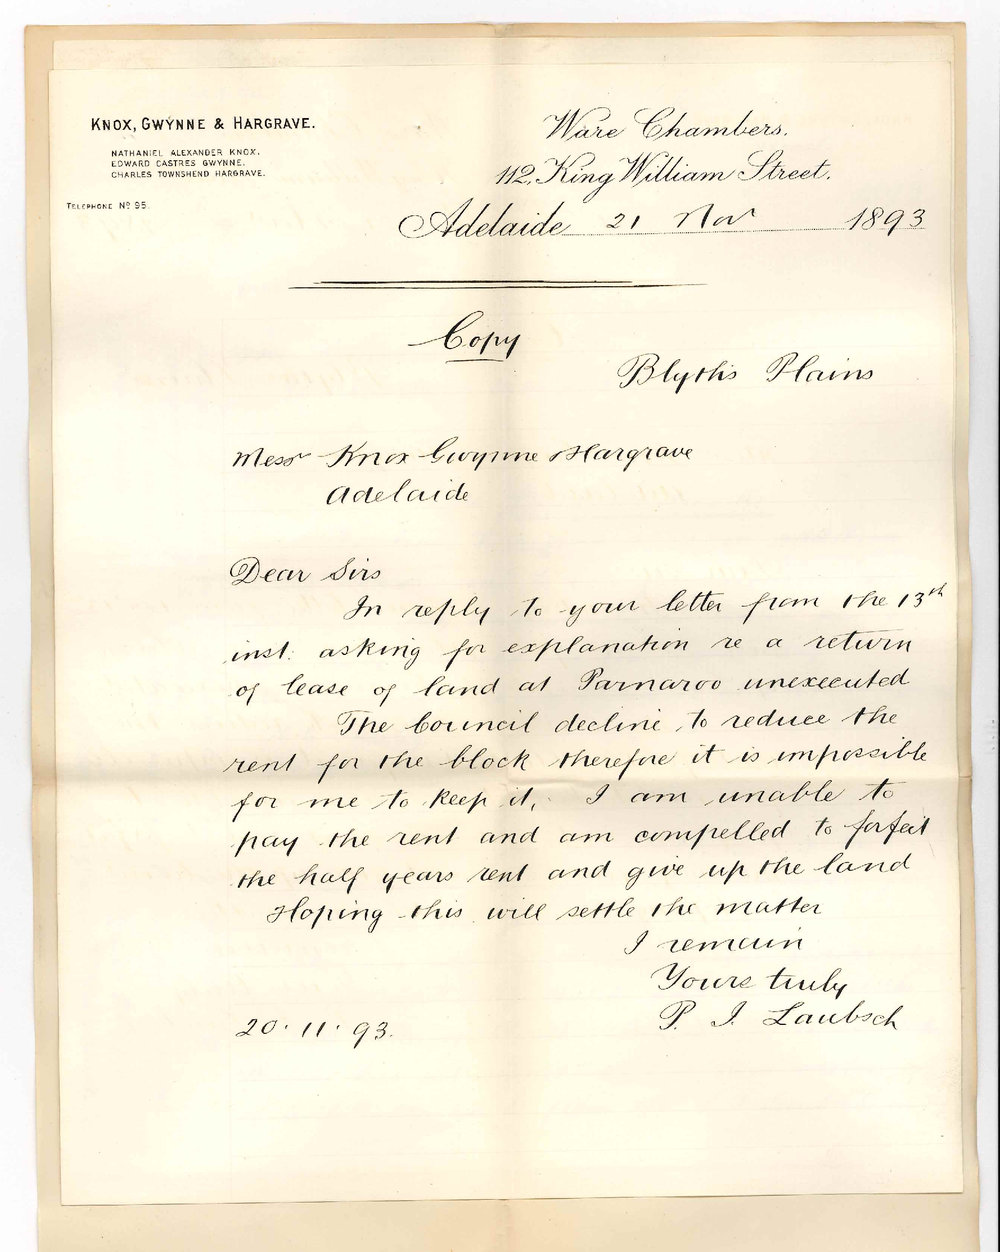 KNOX, GWYNNE & HARGRAVE.
NATHANIEL ALEXANDER KNOX.
EDWARD CASTRES GWYNNE.
CHARLES TOWNSHEND HARGRAVE.
TELEPHONE Nº 95.
Ware Chambers.
112, King William Street.
Adelaide 21 Nov 1893
Copy
Blyth's Plains
Messr Knox Gwynne & Hargrave
Adelaide
Dear Sirs
In reply to your letter from the 13th
inst. asking for explanation re a return
of lease of land at Parnaroo unexecuted
The Council decline to reduce the
rent for the block therefore it is impossible
for me to keep it, I am unable to
pay the rent and am compelled to forfeit
the half years rent and give up the land
Hoping this will settle the matter
I remain
Yours truly
P. I. Laubsch
20.11.93.